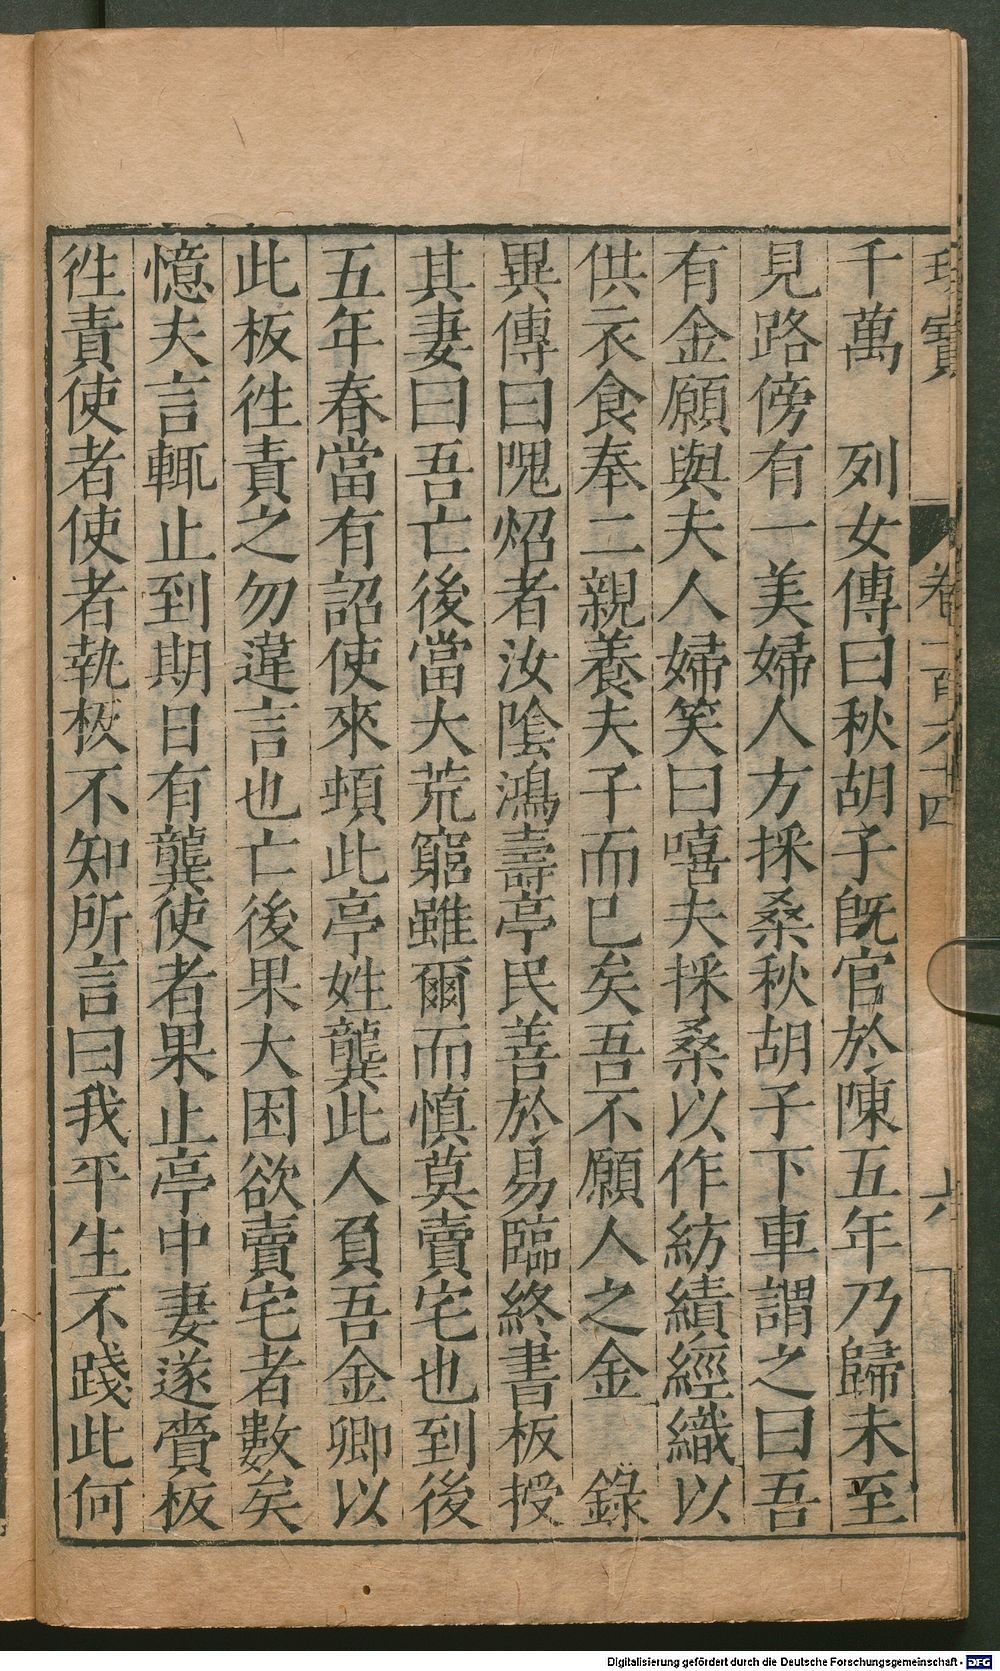 寶 卷二百六十四 六
千萬 列女傳曰秋胡子旣官於陳五年乃歸未至
見路傍有一美婦人方採桑秋胡子下車謂之曰吾
有金願與夫人婦笑曰嘻夫採桑以作紡績經織以
供衣食奉二親養夫子而已矣吾不願人之金 錄
異傳曰隗炤者汝陰鴻壽亭民善於易臨終書板授
其妻曰吾亡後當大荒窮雖爾而慎莫賣宅也到後
五年春當有詔使來頓此亭姓龔此人負吾金卿以
此板徃責之勿違言也亡後果大困欲賣宅者數矣
憶夫言輒止到期日有龔使者果止亭中妻遂賫板
徃責使者使者執板不知所言曰我平生不踐此何
Digitalisierung gefördert durch die Deutsche Forschungsgemeinschaft - DFG